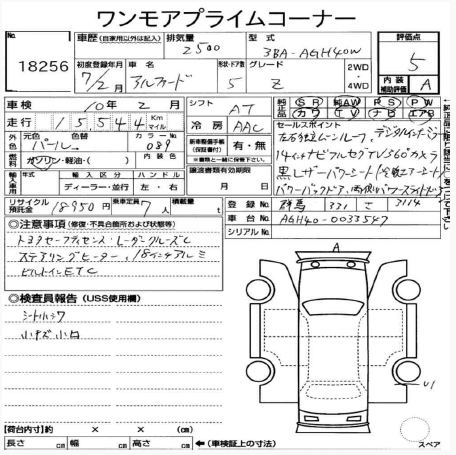 ワンモアプライムコーナー
No. 18256
車歴 (自家用以外は記入) 排気量 2500 型式 3BA-AGH40W 評価点 5
初度登録年月 7/2月 車名 アルファード 形状・ドア数 5 グレード Z 2WD・4WD 内装補助評価 A
車検 10年 2月 シフト AT 純正品 SR 純AW PS PW
走行 15544 Km マイル 冷房 AAC カワ TV ナビ エアB
外色 元色 パール 色替 カラーNo. 089 新車整備手帳(保証書付) 有・無 セールスポイント
燃料 ガソリン・軽油・( ) 内装色 (※書類と一緒にご提出下さい)
左右独立ムーンルーフ、デジタルインナーミラー
14インチナビフルセグTV360°カメラ
輸入車用 年式 輸入区分 ディーラー・並行 ハンドル 左・右 譲渡書類有効期限 月 日
黒レザーパワーシート(冷暖エアーシート)
パワーバックドア、両側パワースライドドア
リサイクル預託金 18950円 乗車定員 7人 積載量 t 登録No. 群馬 331 さ 3114
車台No. AGH40-0033547
シリアルNo.
◎注意事項 (修復・不具合箇所および状態等)
トヨタセーフティセンス・レーダークルーズC
ステアリングヒーター、18インチアルミ
ビルトインETC
◎検査員報告 (USS使用欄)
シートハシワ
小キズ小凹
A
U1
【荷台内寸】約 × × (cm)
長さ cm 幅 cm 高さ cm ←(車検証上の寸法)
スペア